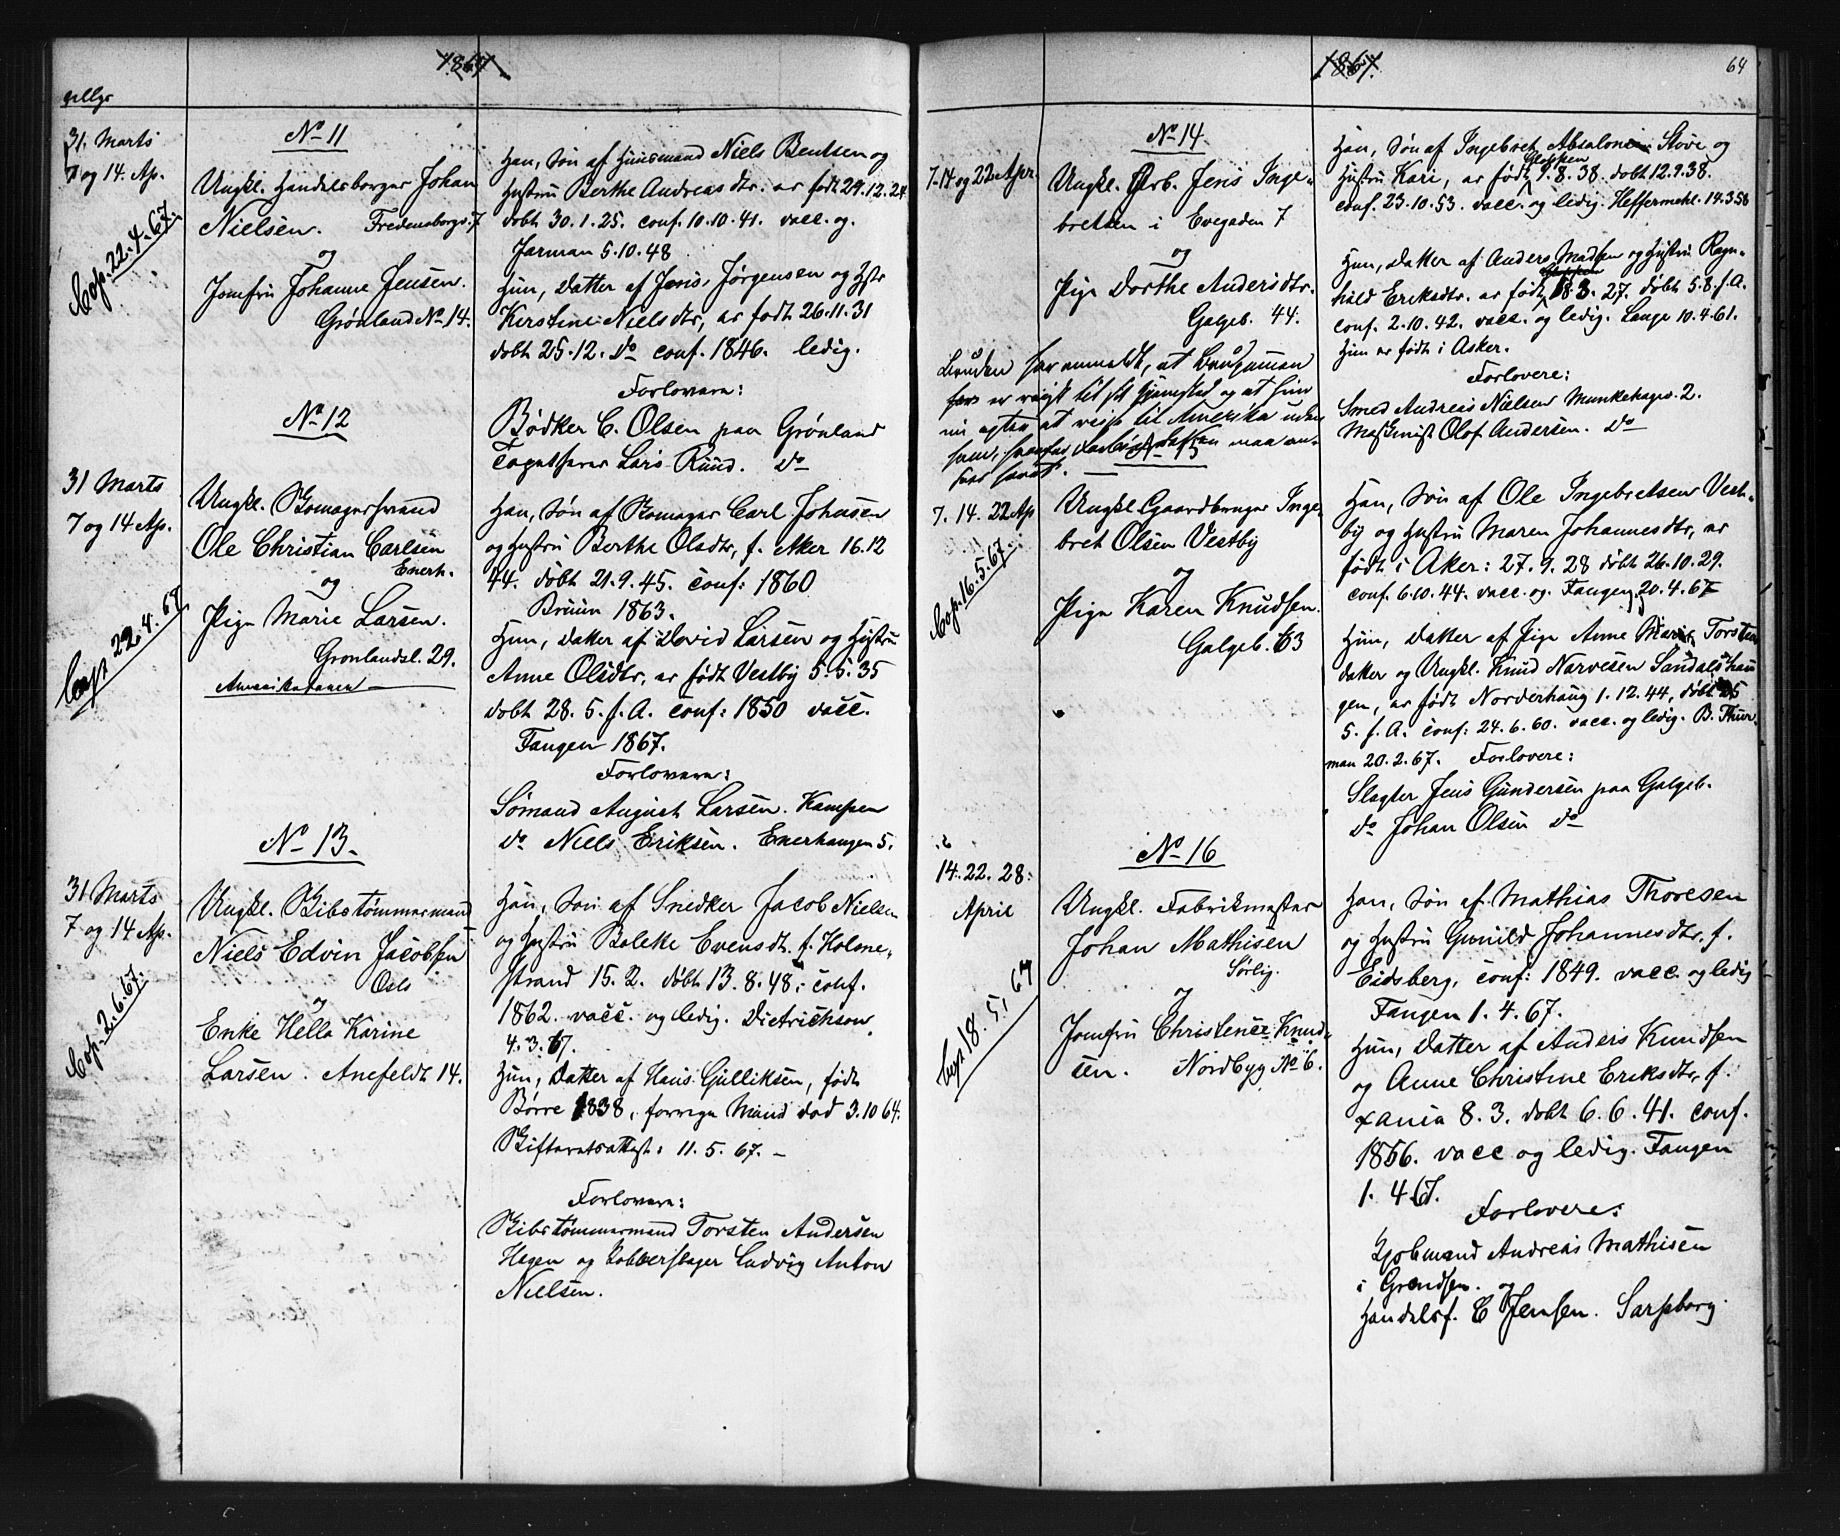 1867
tillyst
31. Marts
7 og 14. Ap.
Cop. 22.4.67.
No 11
Ungkl. Handelsborger Johan
Nielsen. Fredensborgv. 7
og
Jomfru Johanne Jensen.
Grønland No 14.
Han, Søn af Huusmand Niels Bentsen og
Hustru Berthe Andreasdtr. er født 29.12.24
døbt 30.1.25. conf. 10.10.41. vacc. og
Jarman 5.10.48
Hun, Datter af Jens Jørgensen og Hstr
Kirstine Nielsdtr, er født 26.11.31
døbt 25.12. do conf. 1846. ledig.
Forlovere:
Bødker C. Olsen paa Grønland
Lars Ruud. do
31 Marts
7 og 14 Ap.
Copt 22.4.67
No 12
Ungkl. Skomagersvend
Ole Christian Carlsen
Enerh.
og
Pige Marie Larsen.
Grønlandsl. 29.
Han, Søn af Skomager Carl Johnsen
og Hustru Berthe Olsdtr, f. Aker 16.12
44. døbt 21.9.45. conf: 1860
Bruun 1863.
Hun, Datter af David Larsen og Hustru
Anne Olsdtr, er født Vestby 5.5.35
døbt 28.5. f. A. conf: 1850 vacc.
Fangen 1867.
Forlovere:
Sømand August Larsen. Kampen
do Niels Eriksen. Enerhaugen 5.
31 Marts
7 og 14 Ap.
Cop. 2.6.67.
No 13.
Ungkl. Skibstømmermand
Niels Edvin Jacobsen
Oslo
og
Enke Hella Karine
Larsen. Anefeldt 14.
Han, Søn af Snedker Jacob Nielsen
og Hustru Bolette Evensdtr. f. Holme-
strand 15.2. døbt 13.8.48. conf.
1862. vacc. og ledig. Dietrichson
4.3.67.
Hun, Datter af Hans Gulliksen, født
Børre 1838, forrige Mand død 3.10 64.
Skifteretsattest: 11.5.67. –
Forlovere:
Skibstømmermand Torsten Andersen
Hagen og Kobberslager Ludvig Anton
Nielsen.
1867.
64
7. 14 og 22 Apr.
No 14.
Ungkl. Arb. Jens Inge-
bretsen i Evegaden 7
og
Pige Dorthe Andersdtr.
Galgeb. 44.
Bruden har anmeldt, at Brudgommen
er reist til sit Hjemsted og at hun
nu agter at reise til Amerika uden
ham, hvorfor maa an-
Han, Søn af Ingebret Absalonsen Støve og
Hustru Kari, er født 9.8.38. døbt 12.9.38.
conf. 23.10.53. vacc. og ledig. Heffermehl. 14.3.56
Hun, Datter af Anders Madsen og Hustru Ragn-
hild Eriksdtr. er født 18.3.27. døbt 5.8. f. A.
conf. 2.10.42. vacc. og ledig. Lange 10.4.61.
Hun er født i Asker.
Forlovere:
Smed Andreas Nielsen Munkehags. 2.
Maskinist Olof Andersen. do
7. 14. 22 Ap
Cop. 16.5.67.
No 15
Ungkl. Gaardbruger Inge-
bret Olsen Vestby
og
Pige Karen Knudsen.
Galgeb. 63
Han, Søn af Ole Ingebretsen Vest-
by og Hustru Maren Johannesdtr, er
født i Aker: 27.9.28 døbt 26.10.29.
conf. 6.10.44. vacc. og. Fangen 20.4.67
Hun, Datter af Pige Anne Marie Torstens
datter og Ungkl. Knud Narvesen Sandalshau
gen, er født Norderhaug 1.12.44, døbt 25
5. f. A. conf: 24.6.60. vacc. og ledig. B. Thur-
man 20.2.67. Forlovere:
Slagter Jens Gundersen paa Galgeb.
do Johan Olsen do
14. 22. 28.
April
Copt 18.5.67
No 16
Ungkl. Fabrikmester
Johan Mathisen
Sørlig.
og
Jomfru Christense Knud-
sen. Nordbyg No 6.
Han, Søn af Mathias Thoresen
og Hustru Gunild Johannesdtr. f.
Eidsberg, conf: 1849. vacc. og ledig
Fangen 1.4.67.
Hun, Datter af Anders Knudsen
og Anne Christine Eriksdtr. f.
xania 8.3. døbt 6.6.41. conf.
1856. vacc og ledig. Fangen
1.4.67.
Forlovere:
Kjøbmand Andreas Mathisen
i Grendsen. og
Handelsf. C Jensen. Sarpsborg.